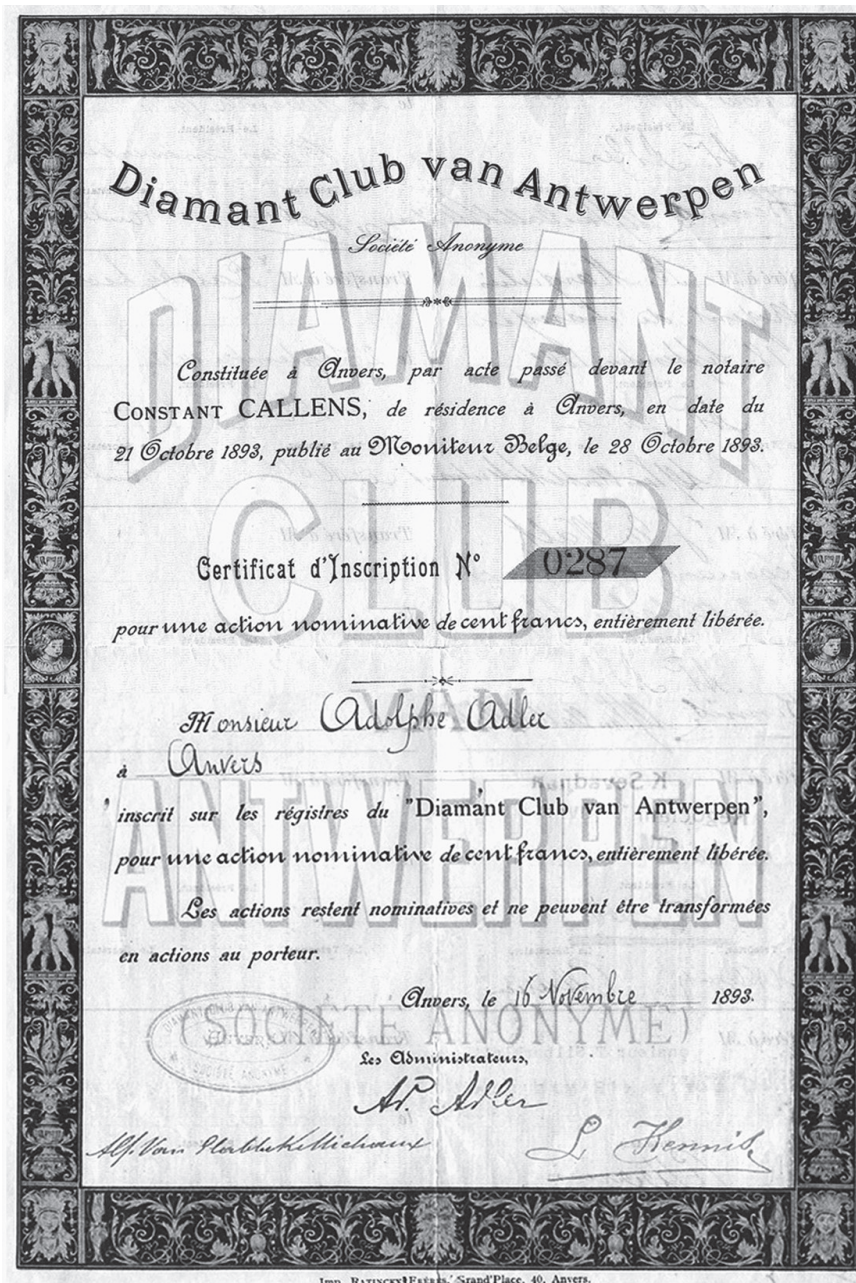 Diamant Club van Antwerpen
Société Anonyme
DIAMANT
CLUB
VAN
ANTWERPEN
(SOCIÉTÉ ANONYME)
Constituée à Anvers, par acte passé devant le notaire
CONSTANT CALLENS, de résidence à Anvers, en date du
21 Octobre 1893, publié au Moniteur Belge, le 28 Octobre 1893.
Certificat d'Inscription N° 0287
pour une action nominative de cent francs, entièrement libérée.
Monsieur Adolphe Adler
à Anvers
inscrit sur les régistres du "Diamant Club van Antwerpen",
pour une action nominative de cent francs, entièrement libérée.
Les actions restent nominatives et ne peuvent être transformées
en actions au porteur.
Anvers, le 16 Novembre 1893.
DIAMANT CLUB VAN ANTWERPEN
SOCIÉTÉ ANONYME
Les Administrateurs,
Ad. Adler
Alf. Van
L. Hennis
Imp. FRÈRES, Grand'Place, 40, Anvers.